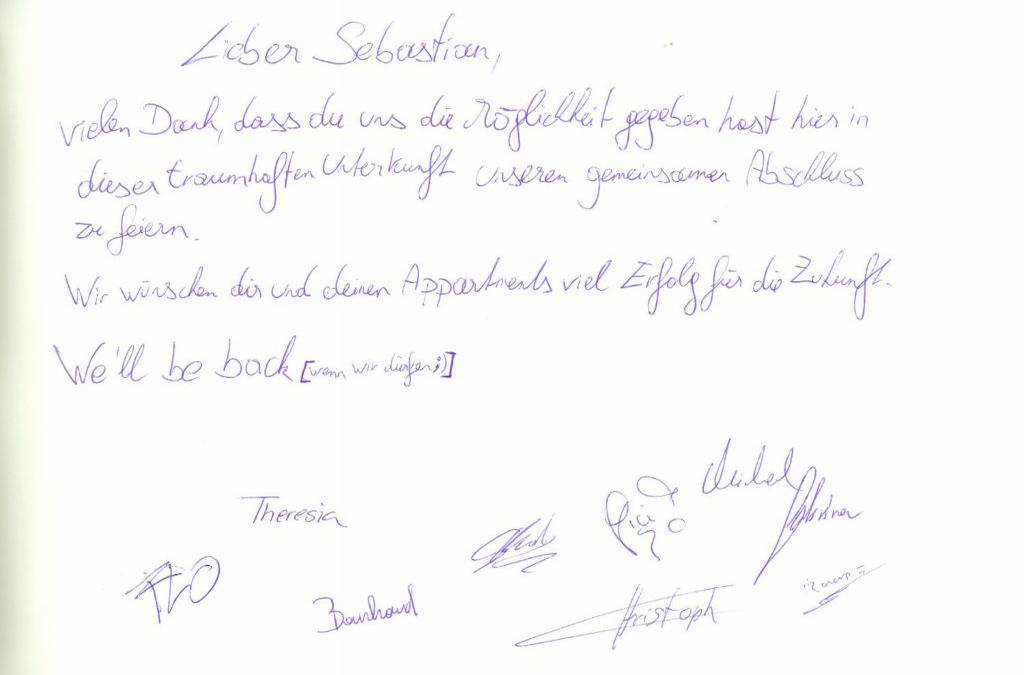 Lieber Sebastian,
vielen Dank, dass du uns die Möglichkeit gegeben hast hier in
dieser traumhaften Unterkunft unseren gemeinsamen Abschluss
zu feiern.
Wir wünschen dir und deinen Appartments viel Erfolg für die Zukunft.
We'll be back [wenn wir dürfen ;)]
Michael
Theresia
Christoph